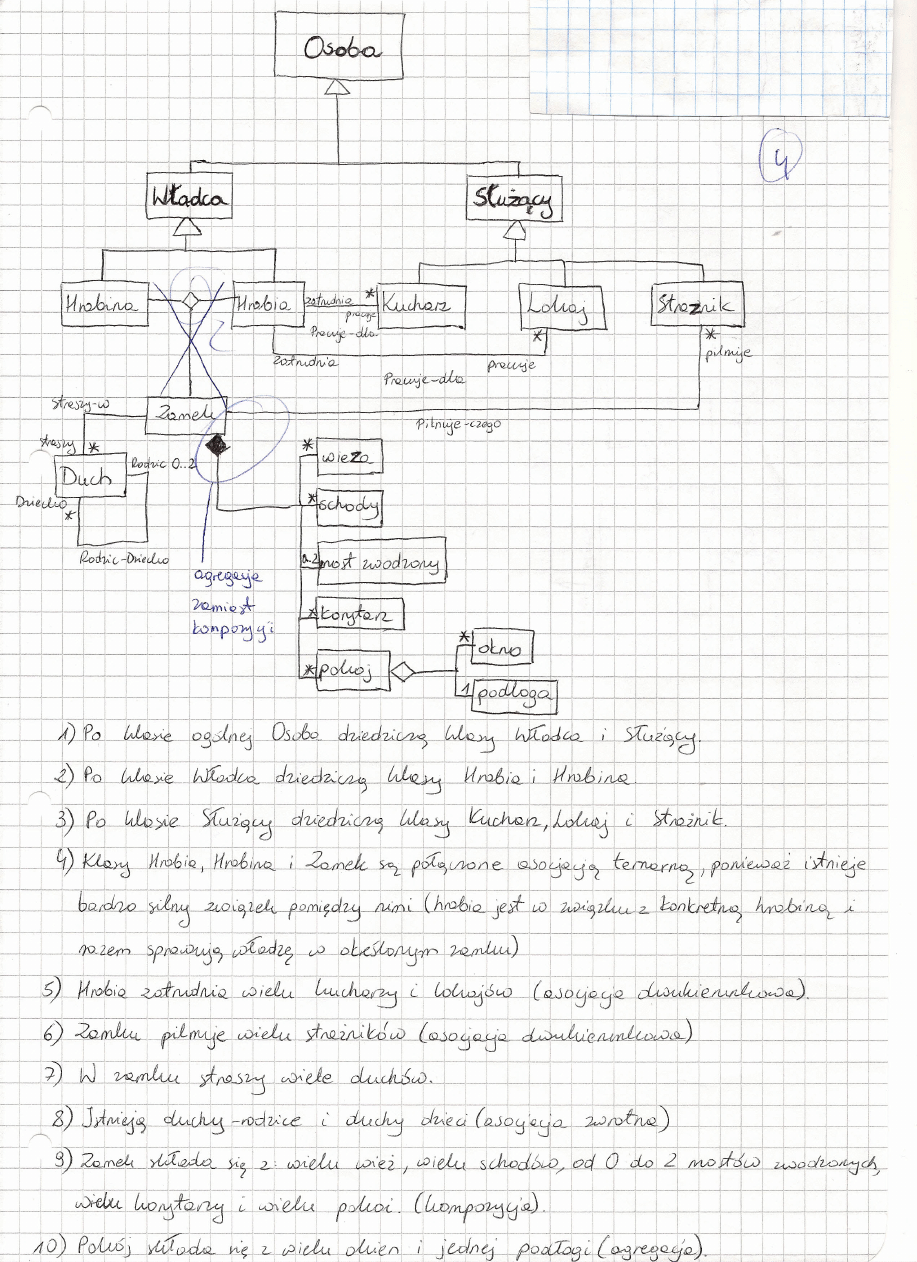 Osoba
4
Władca
Służący
Hrabina
Hrabia
zatrudnia
*
pracuje
Pracuje-dla
Kucharz
Lokaj
Strażnik
*
*
pilnuje
Zatrudnia
pracuje
Pracuje-dla
Straszy-w
Zamek
Pilnuje-czego
straszy *
Rodzic 0..2
Duch
Dziecko
*
Rodzic-Dziecko
agregacja
zamiast
kompozycji
* wieża
* schody
0..2 most zwodzony
* korytarz
* pokój
* okno
1 podłoga
1) Po klasie ogólnej Osoba dziedziczą klasy Władca i Służący.
2) Po klasie Władca dziedziczą klasy Hrabia i Hrabina.
3) Po klasie Służący dziedziczą klasy Kucharz, Lokaj i Strażnik.
4) Klasy Hrabia, Hrabina i Zamek są połączone asocjacją ternarną, ponieważ istnieje
bardzo silny związek pomiędzy nimi (hrabia jest w związku z konkretną hrabiną i
razem sprawują władzę w określonym zamku)
5) Hrabia zatrudnia wielu kucharzy i lokajów (asocjacja dwukierunkowa).
6) Zamku pilnuje wielu strażników (asocjacja dwukierunkowa)
7) W zamku straszy wiele duchów.
8) Istnieją duchy-rodzice i duchy dzieci (asocjacja zwrotna)
9) Zamek składa się z: wielu wież, wielu schodów, od 0 do 2 mostów zwodzonych,
wielu korytarzy i wielu pokoi. (kompozycja).
10) Pokój składa się z wielu okien i jednej podłogi (agregacja).